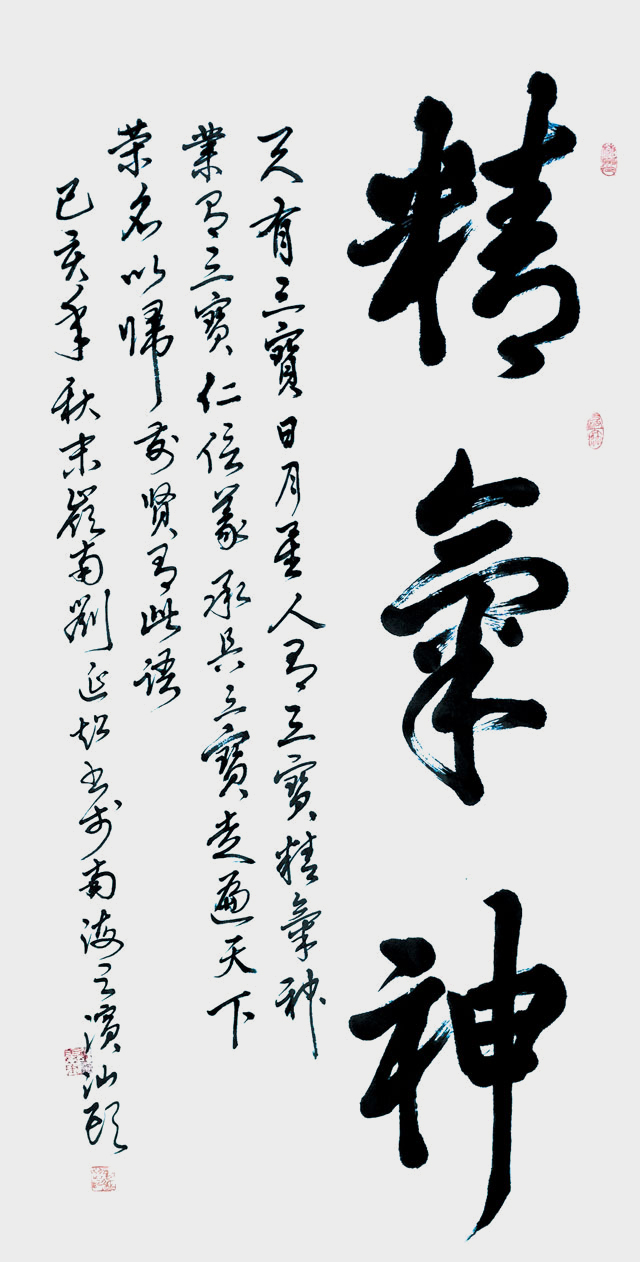 精氣神
天有三寶日月星人有三寶精氣神
業有三寶仁信義承三寶走遍天下
荣名以歸前贤有此语
己亥年秋末嶺南劉延超书於南海之濱汕頭